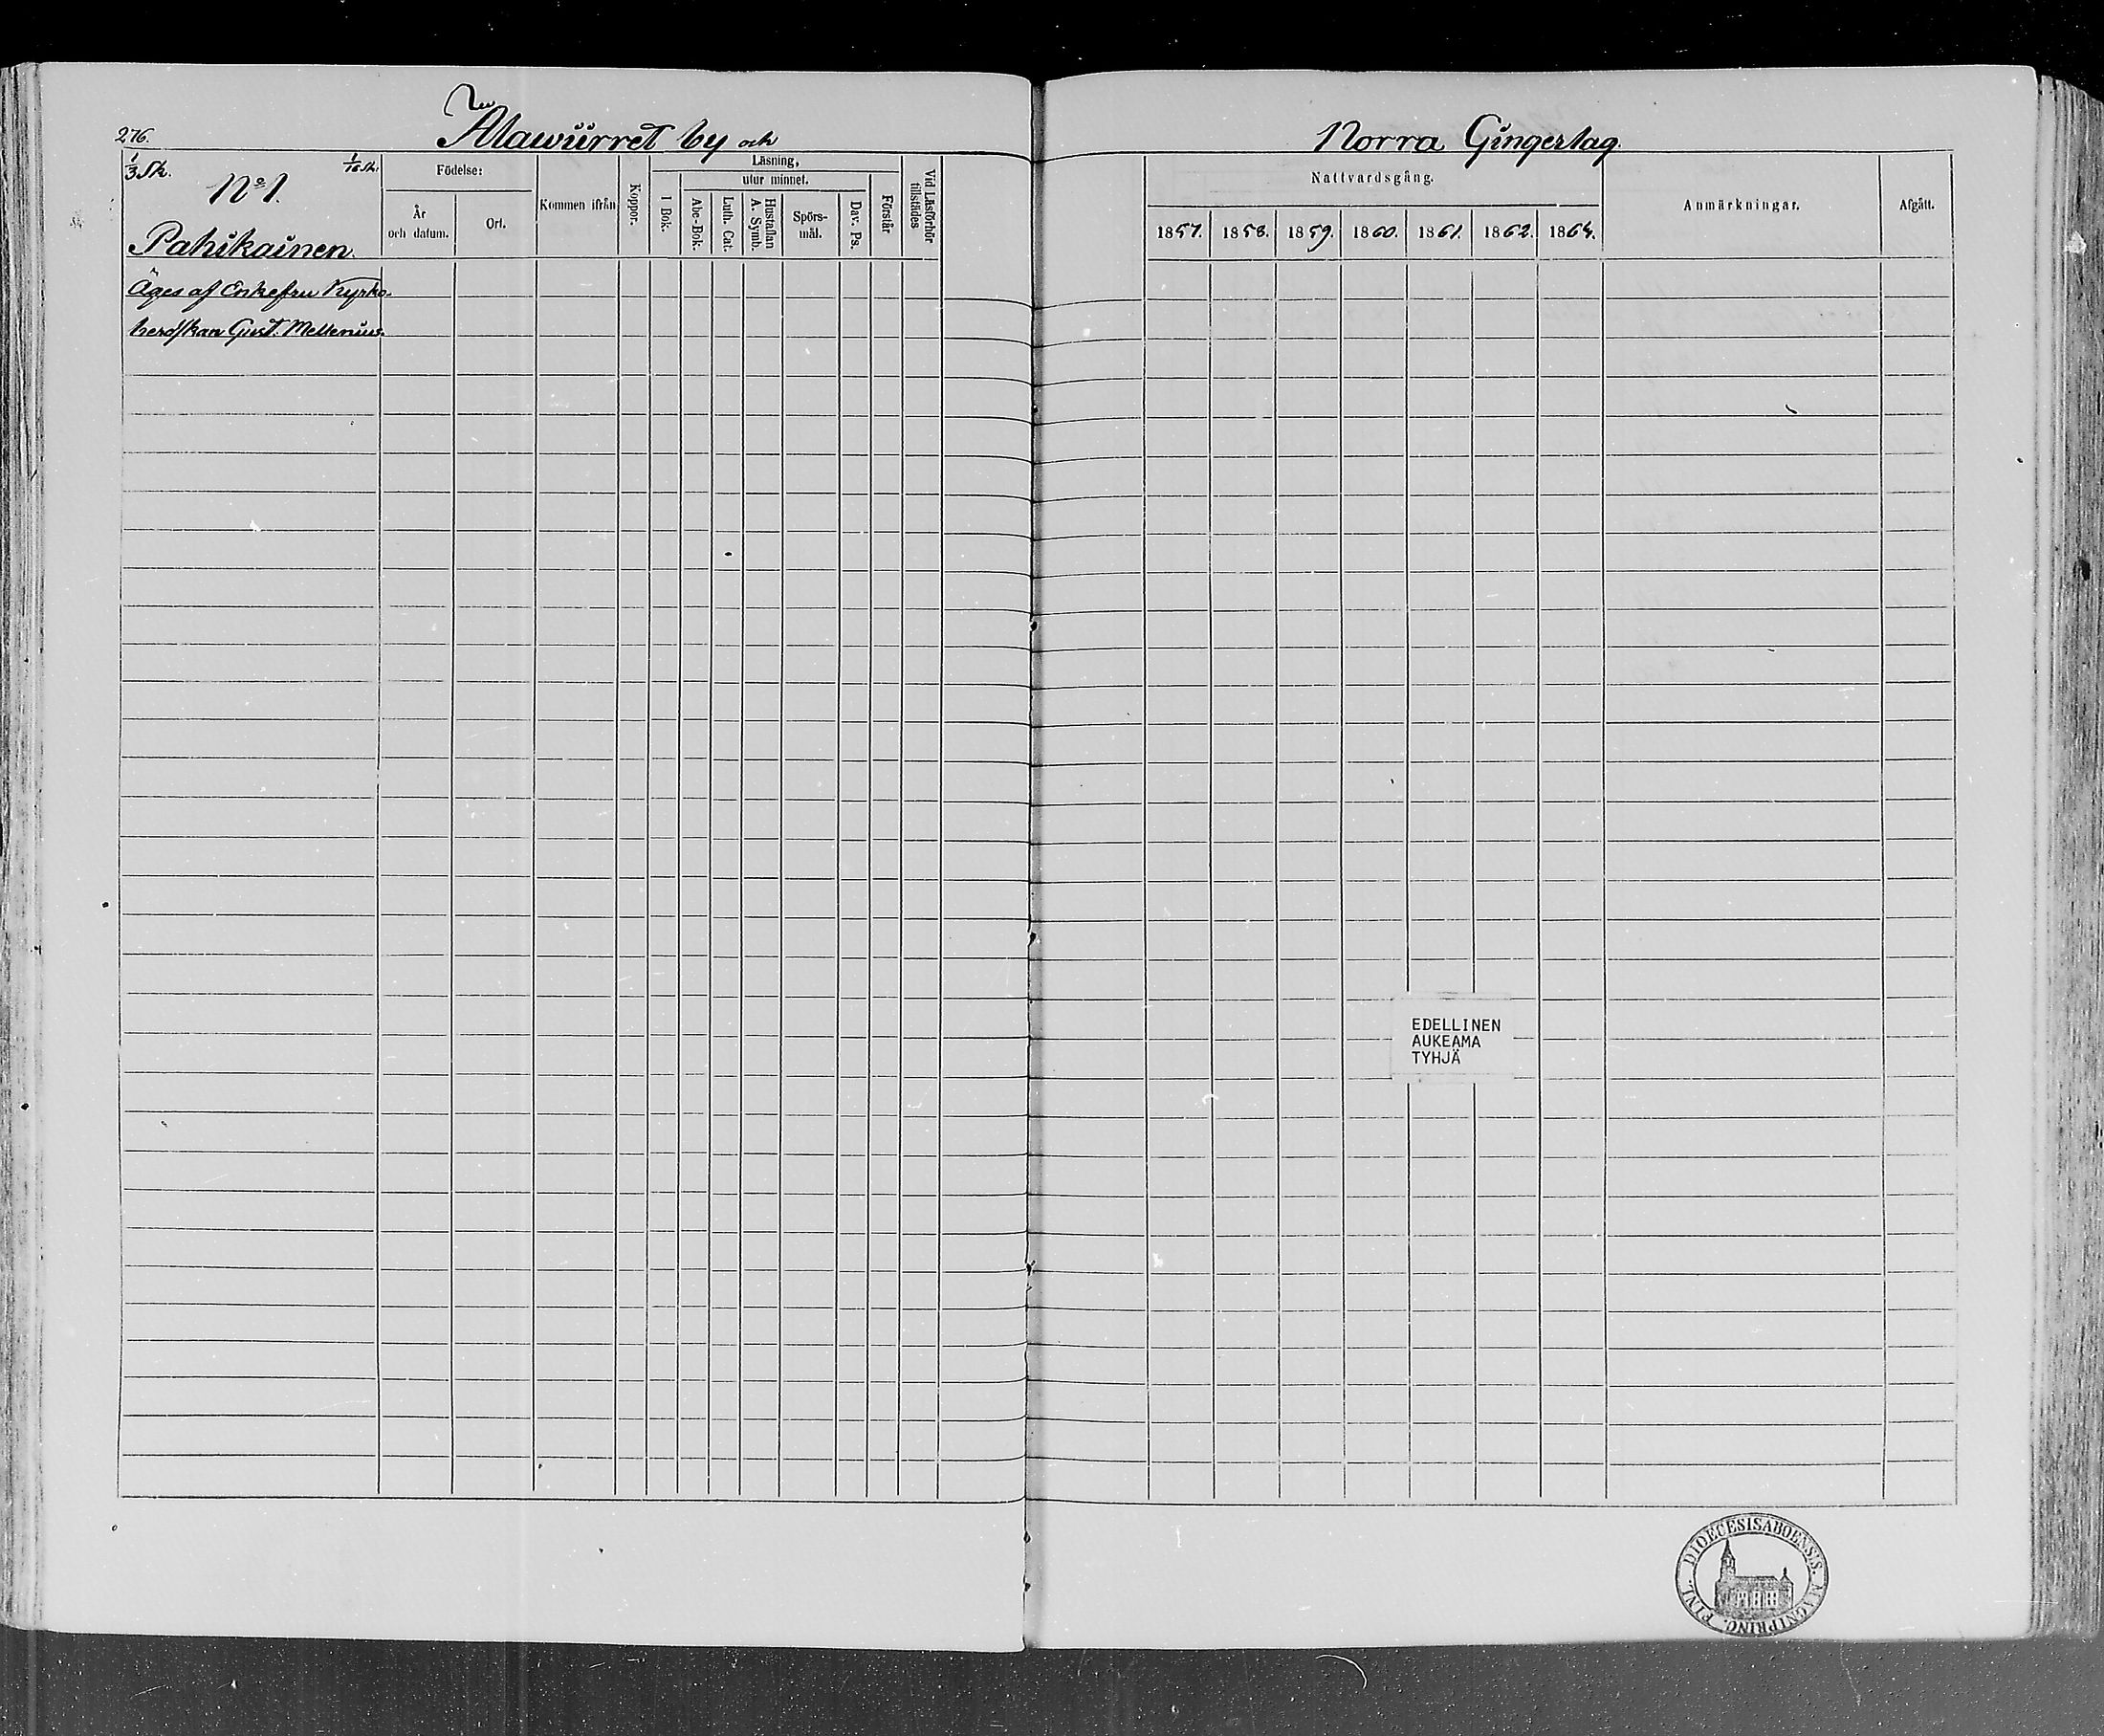 276.
Alawiirret by och
Norra Gingerlag.
1/3 Sk. 1/16 Sk.
No 1.
Pahikainen.
Äges af Enkefru Kyrko-
herdskan Gust. Mellenius.
Födelse:
År
och datum.
Ort.
Kommen ifrån
Koppor.
Läsning,
utur minnet.
I Bok.
Abc-Bok.
Luth. Cat.
Hustaflan
A. Symb.
Spörs-
mål.
Dav. Ps.
Förstår
Vid Läsförhör
tillstädes
Nattvardsgång.
1857. 1858. 1859. 1860. 1861. 1862. 1864.
Anmärkningar.
Afgått.
EDELLINEN
AUKEAMA
TYHJÄ
DIOECESIS ABOENSIS. MAGNI PRINC. FINL.